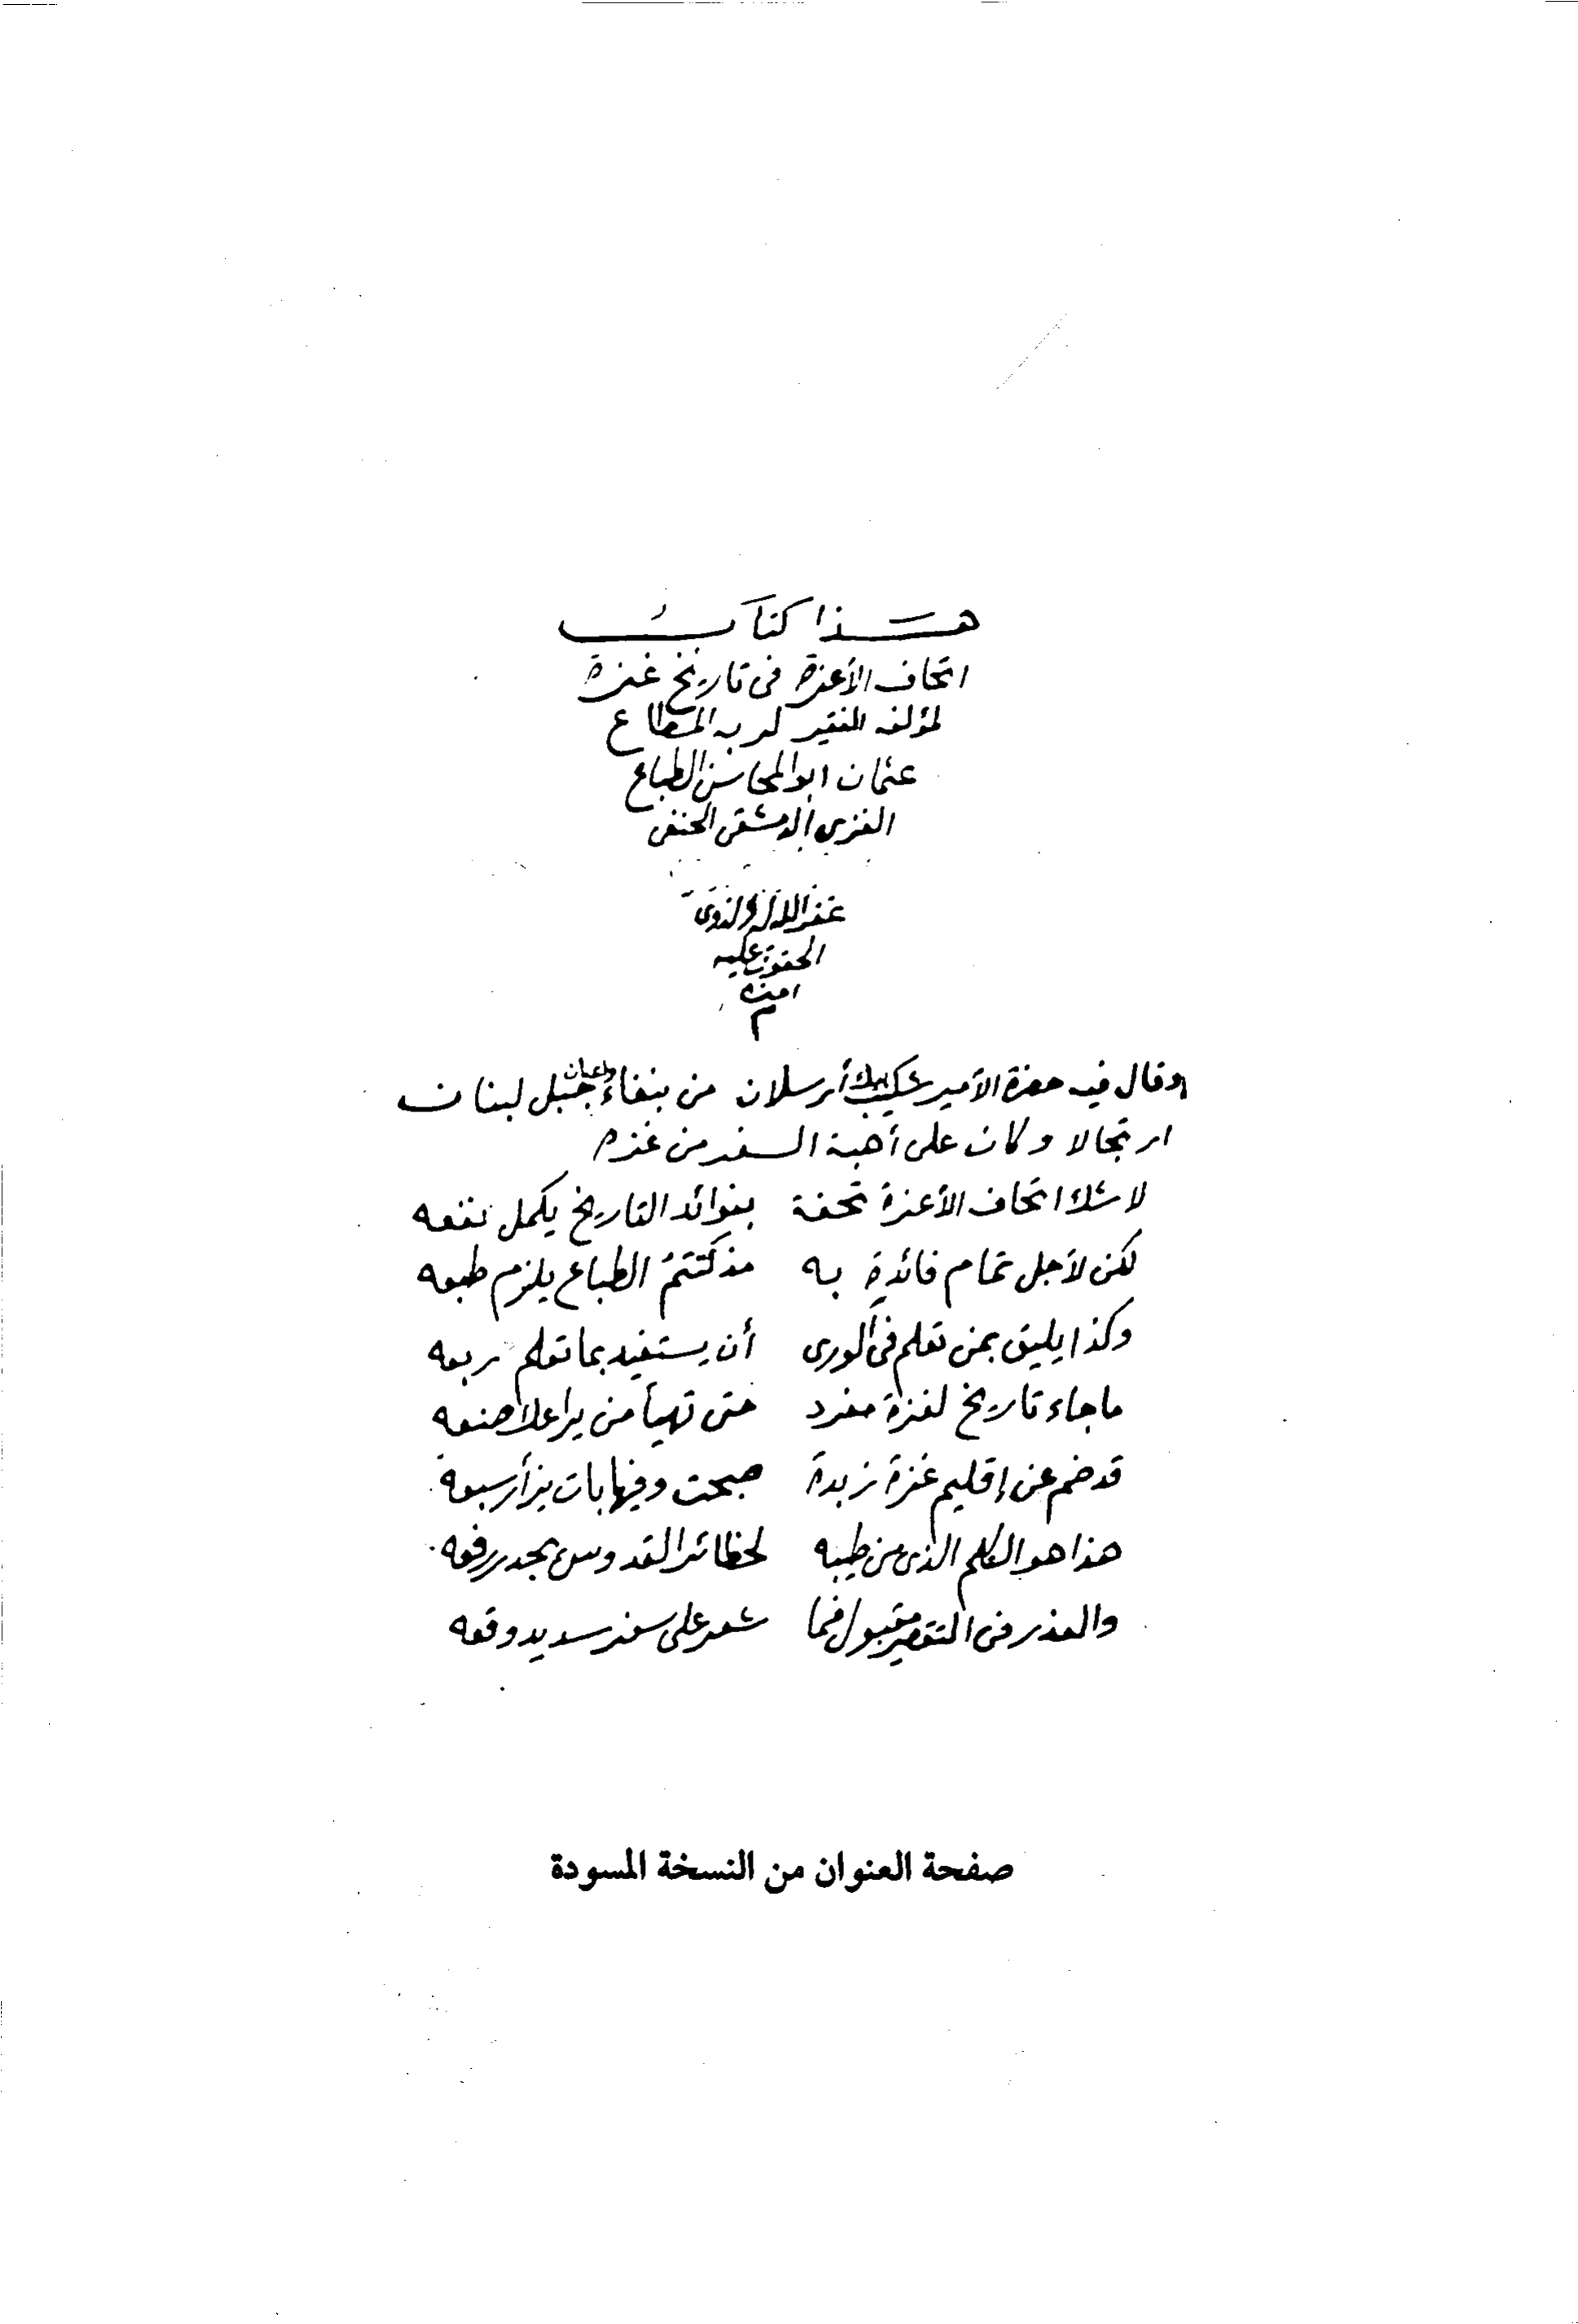 هذا كتاب
اتحاف الأعزة فى تاريخ غزة
لمؤلفه الفقير لربه المطاع
عثمان ابو المحاسن الطباع
الغزى الدمشقى الحنفى
غفر الله له ولذوى
الحقوق عليه
امين
م
وقال فيه حضرة الأمير شكيب بك أرسلان من بلغاء واعيان جبل لبنان
ارتجالا وكان على أهبة السفر من غزه
لا شك اتحاف الأعزة تحفة بفوائد التاريخ يكمل نفعه
لكن لأجل تمام فائدةٍ به مذ الطباع يلزم طبعه
وكذا يليق بمن تعلم فى الورى أن يستفيد بما تعلم ربعه
ما جاء تاريخ لغزة مفرد حتى تهيأ من صنعه
قد ضم عن إقليم غزة زبدة وفيها بات
هذا هو الكلم الذى من طيبه لحظائر القدوس يجدر رفعه
والعذر فى التقصير مقبول فما شعر على سفر سديد وقعه
صفحة العنوان من النسخة المسودة